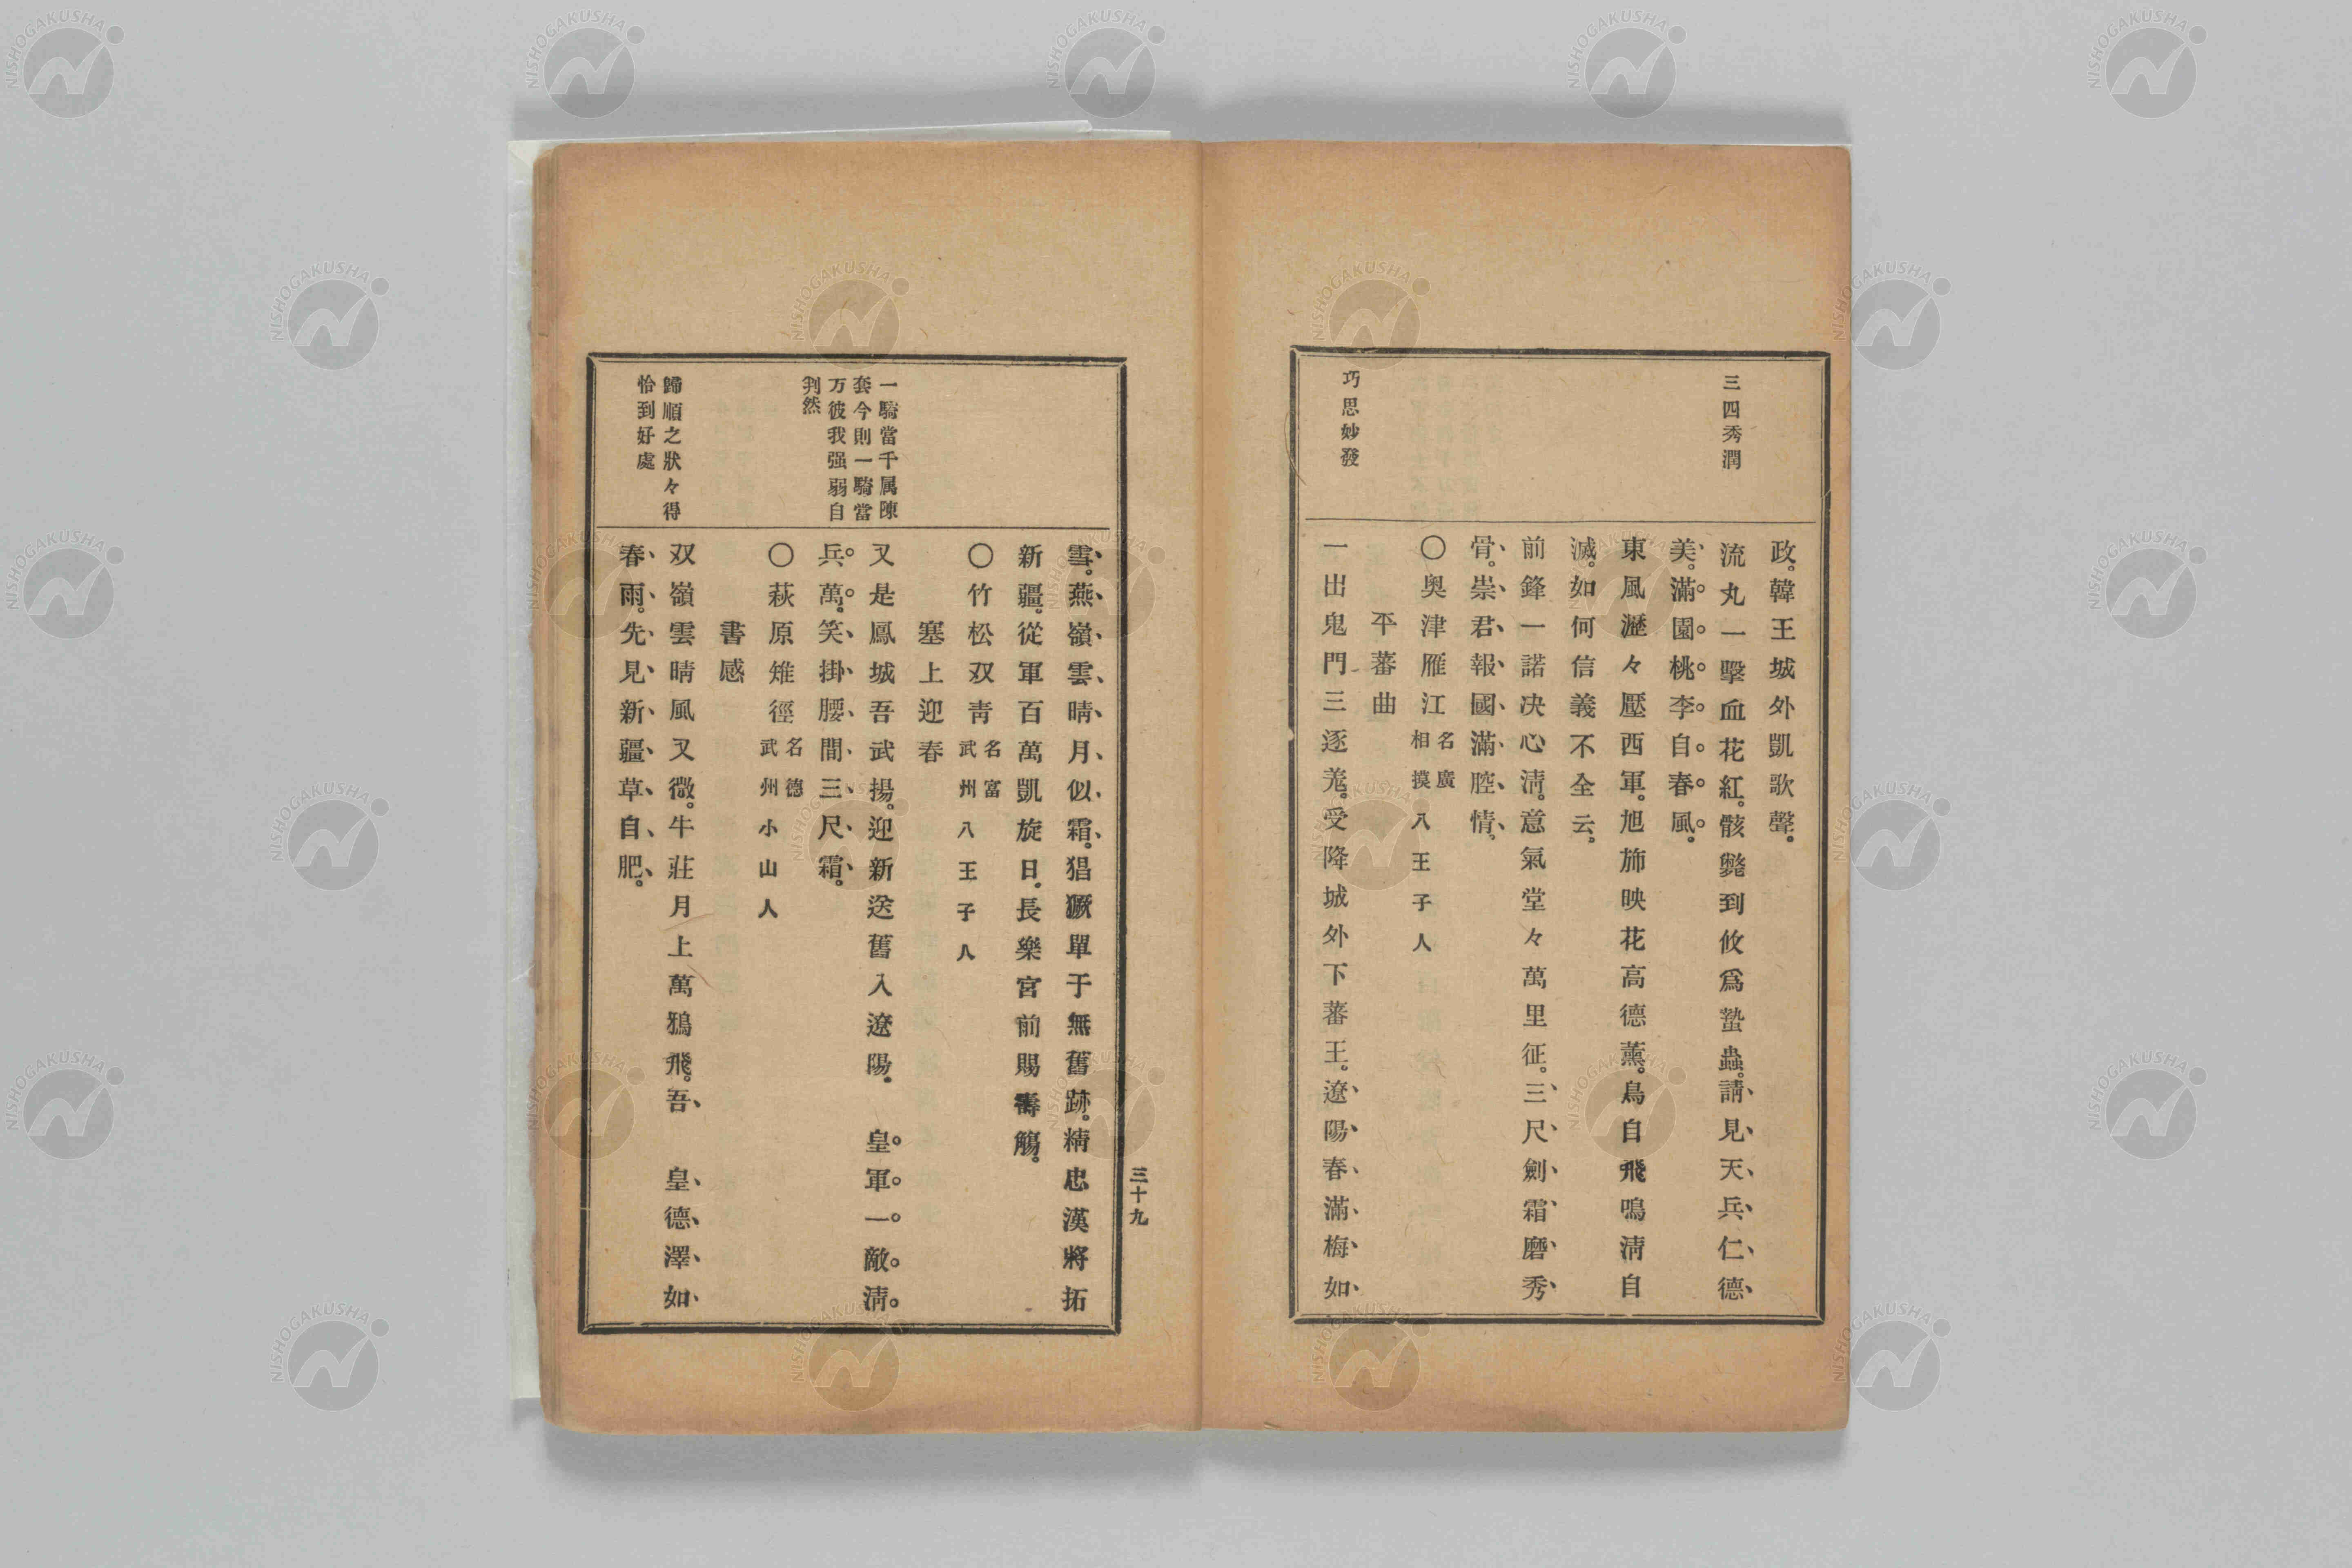 三四秀潤
巧思妙發
政。韓王城外凱歌聲。
流丸一擊血花紅。骸斃到攸爲蟄蟲。請見天兵仁德
美。滿園桃李自春風。
東風瀝々壓西軍。旭旆映花高德薰。鳥自飛鳴淸自
滅。如何信義不全云。
前鋒一諾决心淸。意氣堂々萬里征。三尺劍霜磨秀
骨。崇君報國滿腔情。
〇奥津雁江 名廣 相摸八王子人
平蕃曲
一出鬼門三逐羗。受降城外下蕃王。遼陽春滿梅如
一騎當千属陳
套今則一騎當
万彼我强弱自
判然
歸順之狀々得
恰到好處
雪。燕嶺雲晴月似霜。猖獗單于無舊跡。精忠漢將拓
新疆。從軍百萬凱旋日。長樂宮前賜壽觴。
〇竹松双靑 名富 武州八王子人
塞上迎春
又是鳳城吾武揚。迎新送舊入遼陽。皇軍一敵淸
兵萬。笑掛腰間三尺霜。
〇萩原雉徑 名德 武州小山人
書感
双嶺雲晴風又微。牛莊月上萬鴉飛。吾皇德澤如
春雨。先見新疆草自肥。
三十九
NISHOGAKUSHA